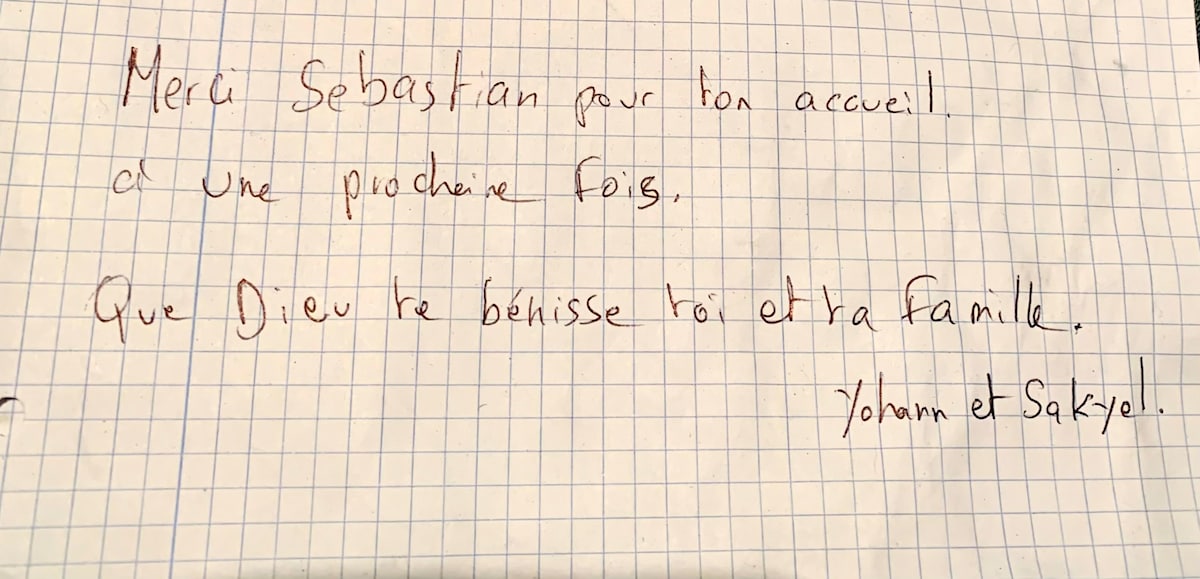 Merci Sebastian pour ton accueil.
à une prochaine fois.
Que Dieu te bénisse toi et ta famille.
Yohann et Sakyel.